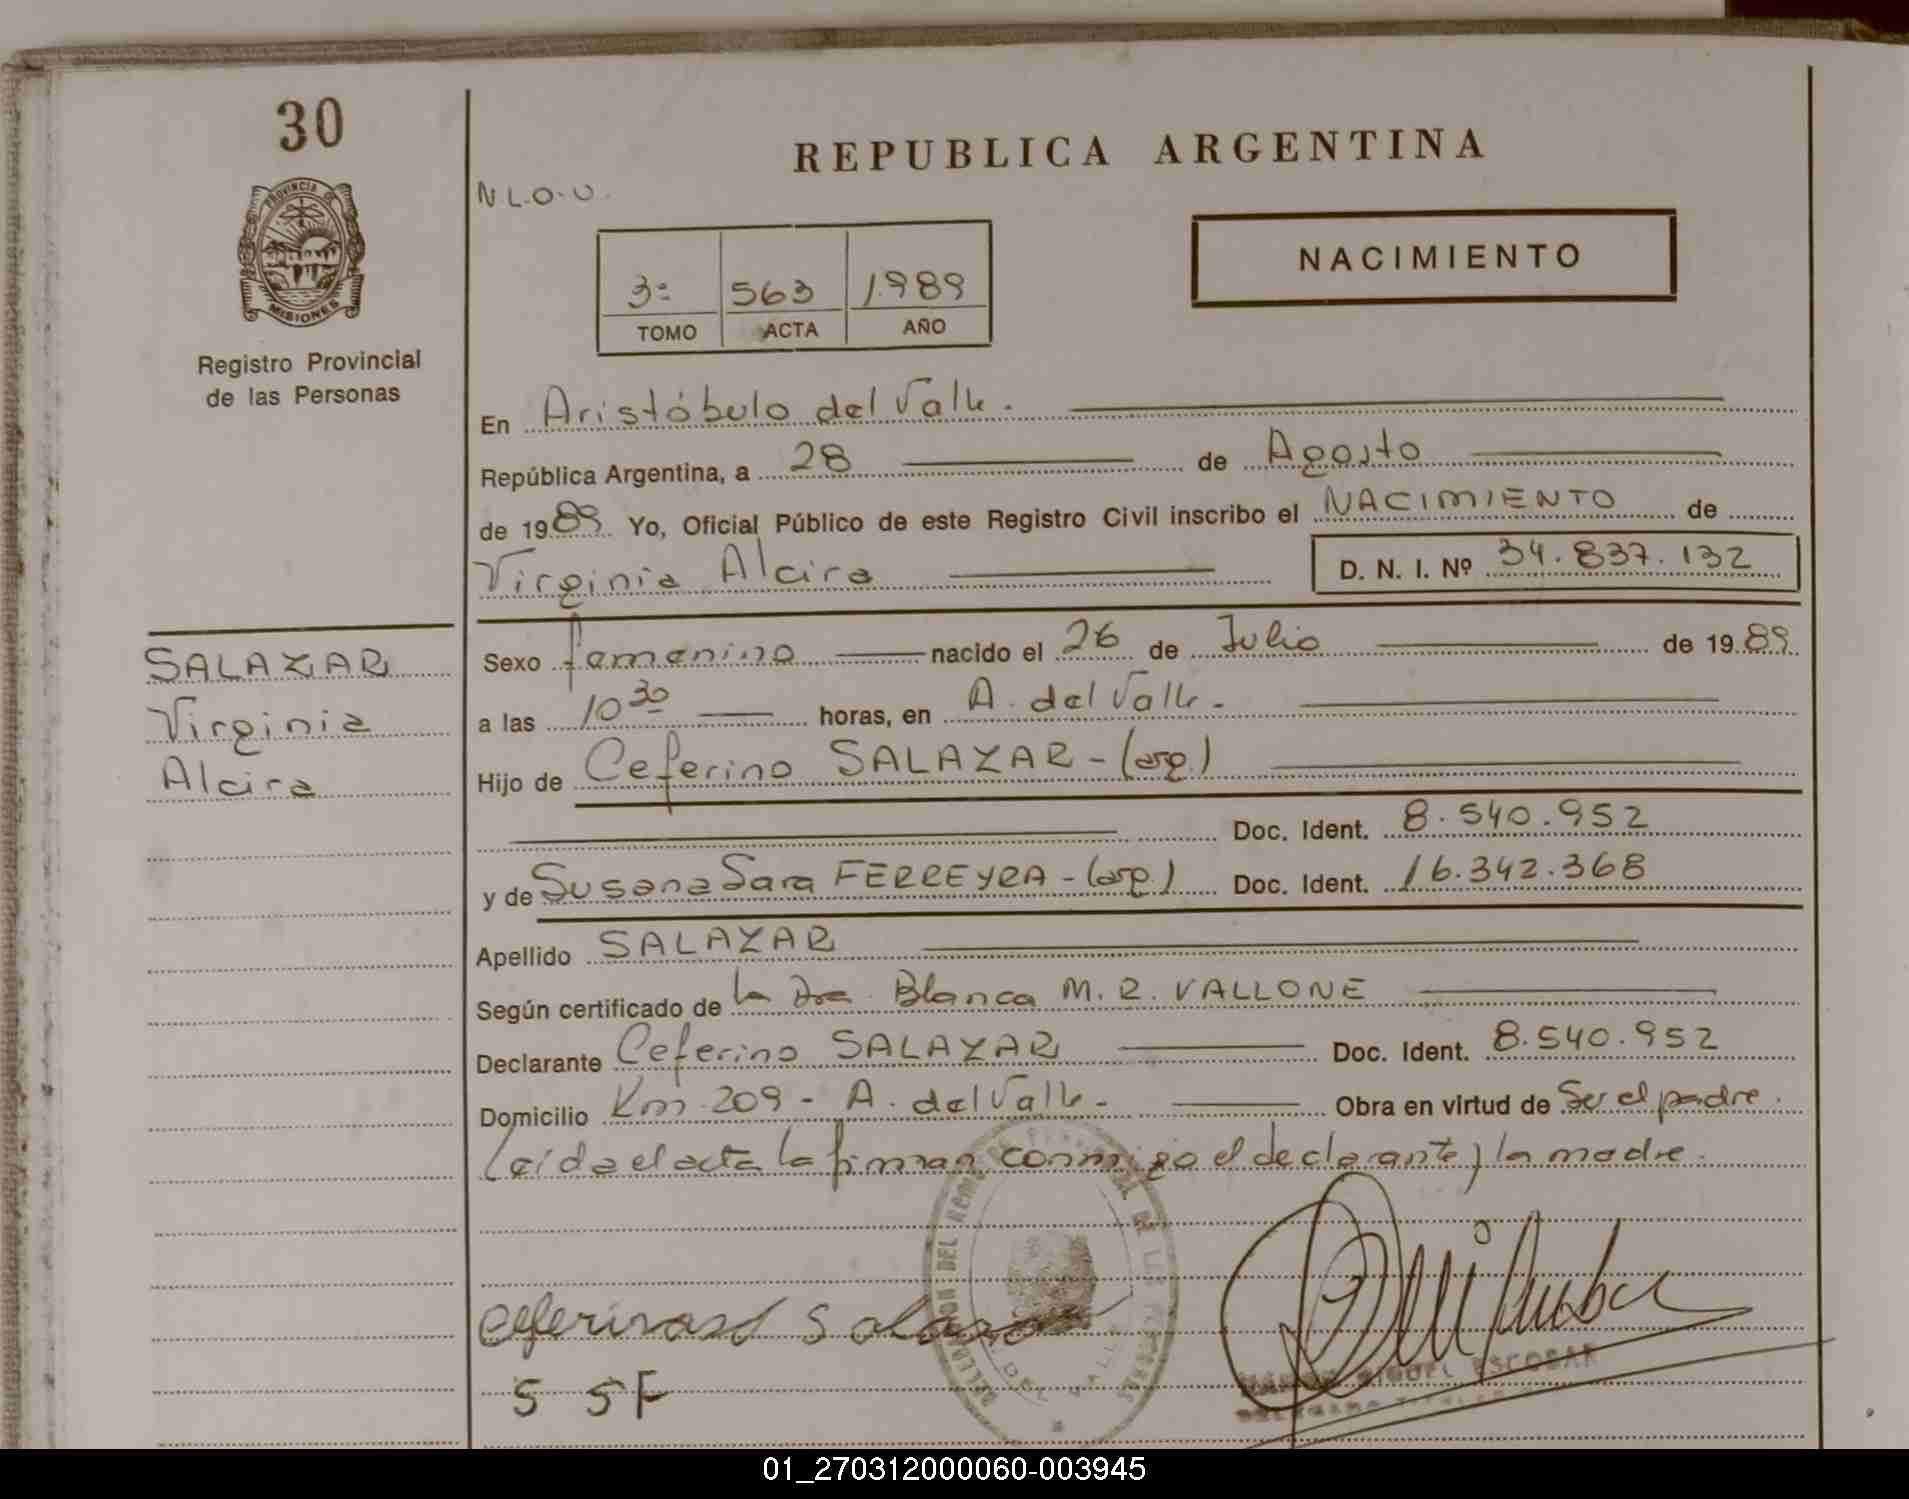 30
REPUBLICA ARGENTINA
N.L.O.U.
PROVINCIA DE
MISIONES
Registro Provincial
de las Personas
3º 563 1.989
TOMO ACTA AÑO
NACIMIENTO
En Aristóbulo del Valle.
República Argentina, a 28 de Agosto
de 1989 Yo, Oficial Público de este Registro Civil inscribo el NACIMIENTO de
Virginia Alcira D. N. I. Nº 34.837.132
SALAZAR
Virginia
Alcira
Sexo femenino nacido el 26 de Julio de 1989
a las 10 30 horas, en A. del Valle.
Hijo de Ceferino SALAZAR - (arg.)
Doc. Ident. 8.540.952
y de Susana Sara FERREYRA - (arg.) Doc. Ident. 16.342.368
Apellido SALAZAR
Según certificado de la Dra. Blanca M. R. VALLONE
Declarante Ceferino SALAZAR Doc. Ident. 8.540.952
Domicilio Km 209 - A. del Valle - Obra en virtud de Ser el padre.
Leída el acta la firman conmigo el declarante y la madre.
S SF
MIGUEL ESCOBAR
01_270312000060-003945